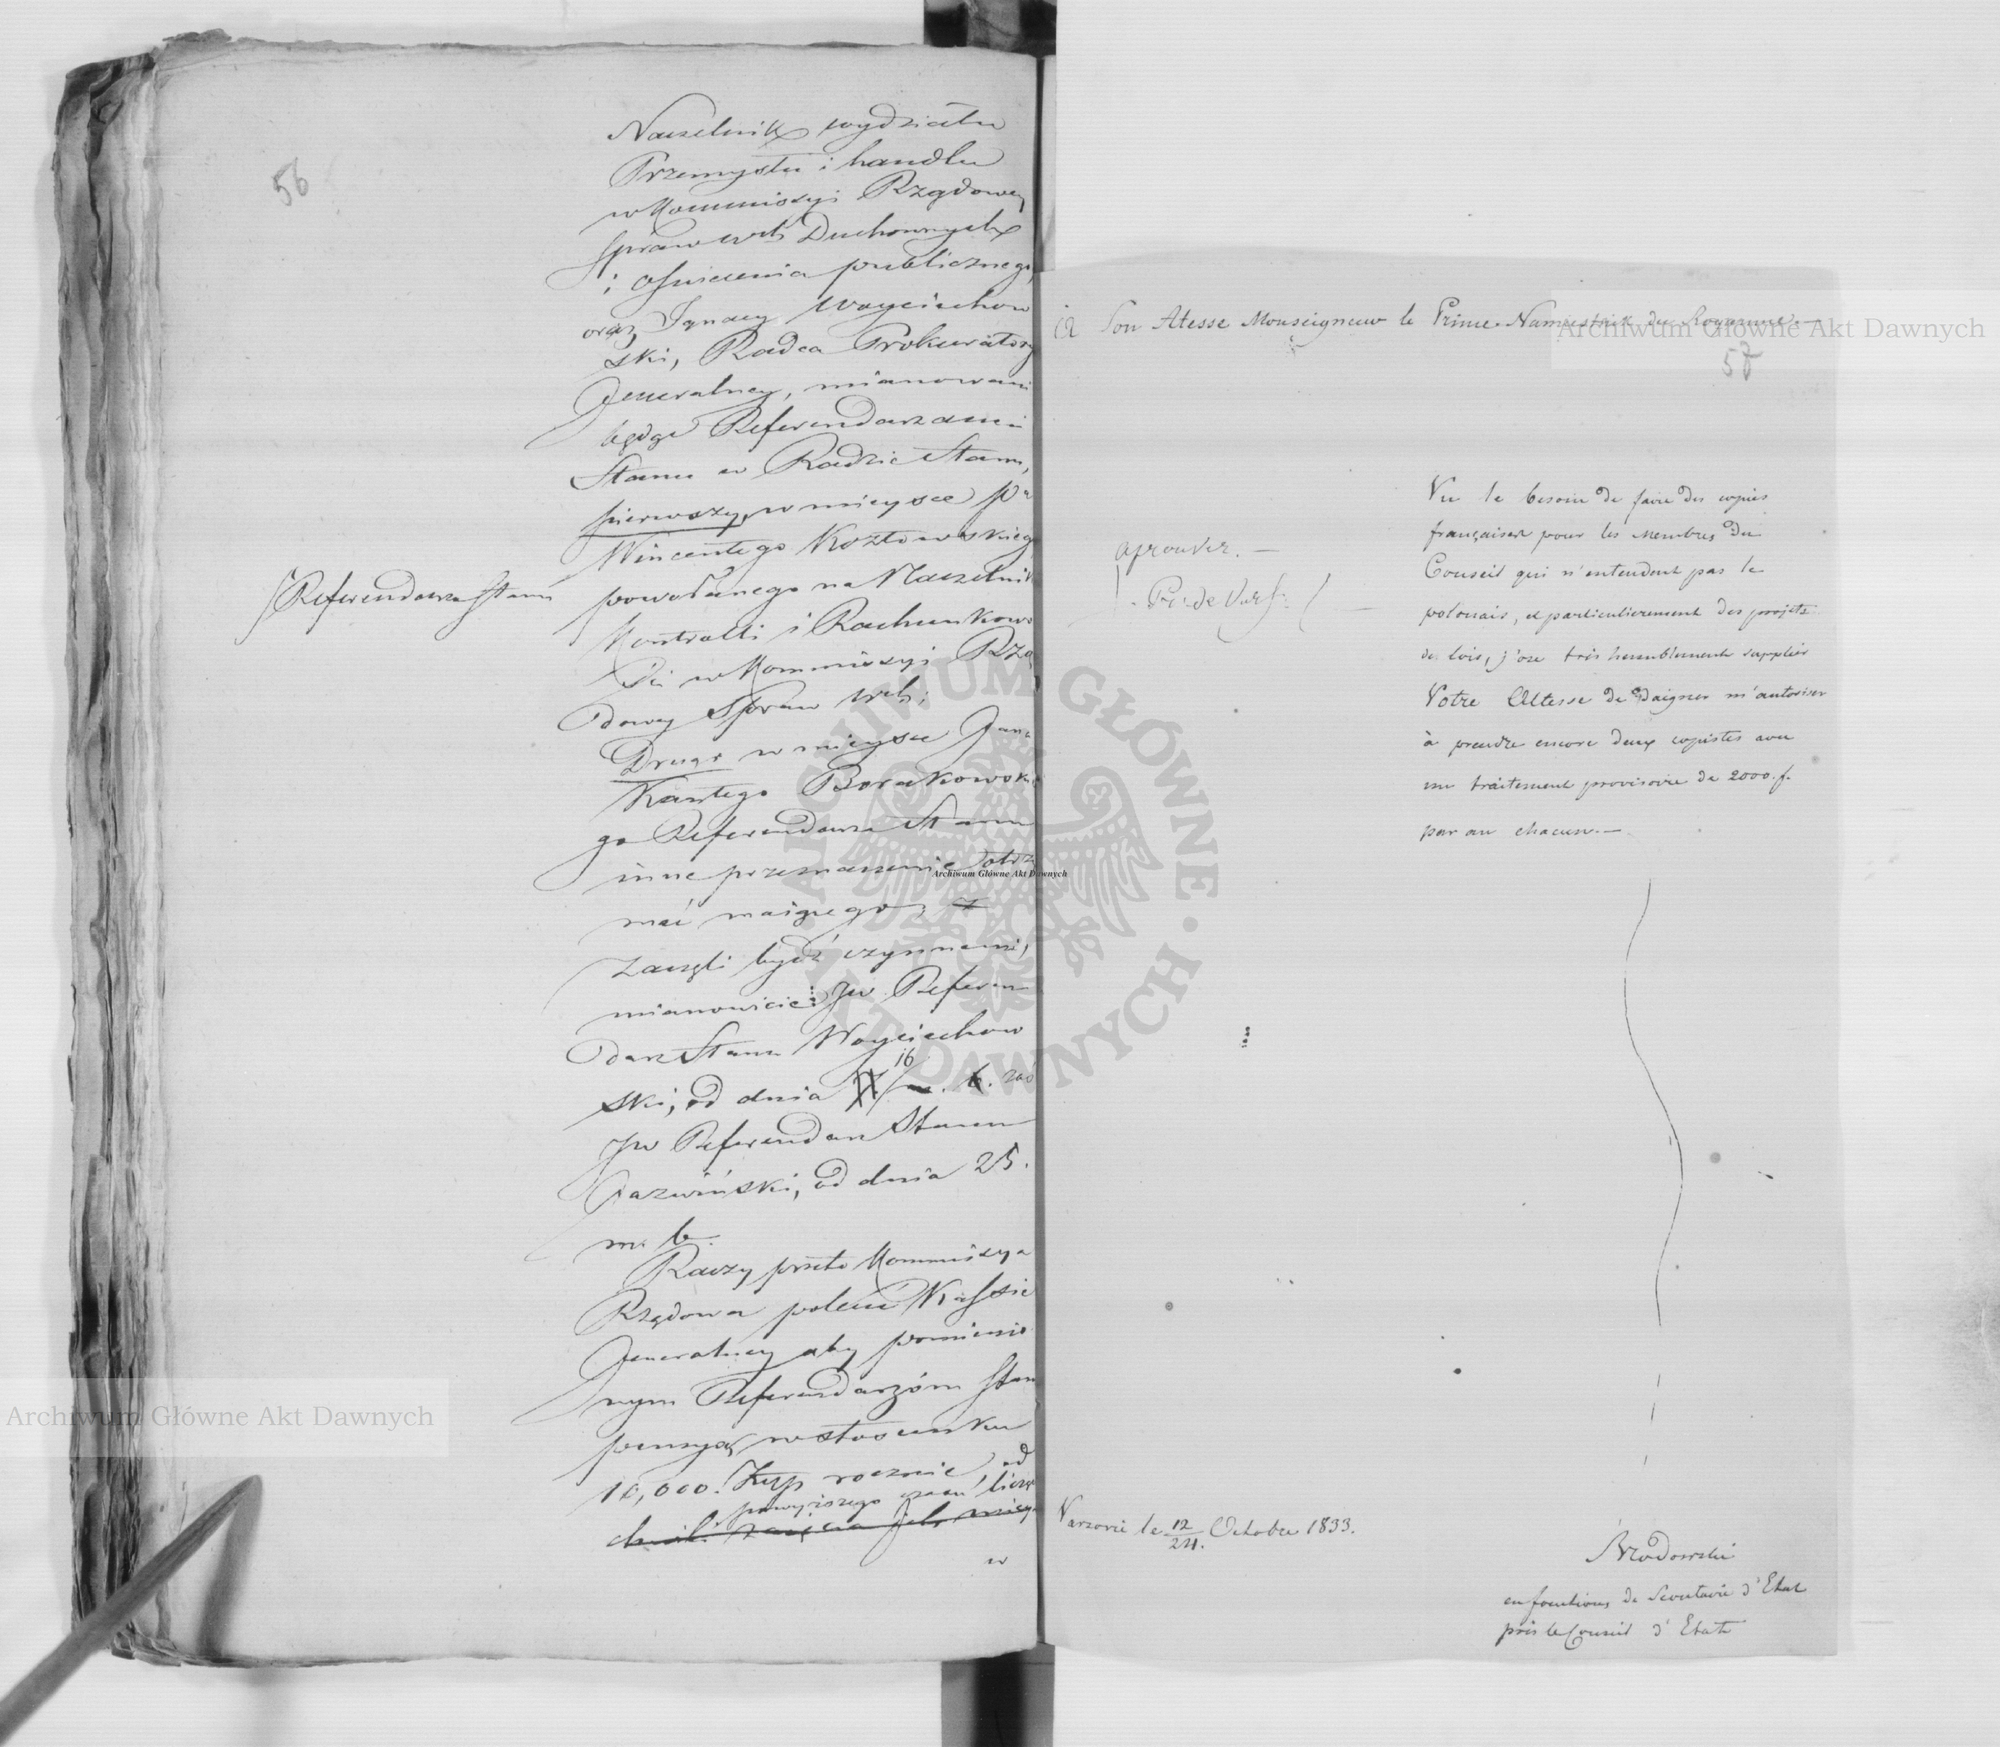 56
Naczelnik wydziału
Przemysłu i handlu
w Kommissyi Rządowey
Spraw Wch Duchownych
i Oświecenia publicznego,
oraz Ignacy Woyciechow
ski, Radca Prokuratoryi
Jeneralney, mianowani
będąc Referendarzami
Stanu w Radzie Stanu,
pierwszy, w mieysce Pa
Wincentego Kozłowskiego
Referendarza Stanu
powołanego na Naczelnika
Kontrolli i Rachunkowo
ści w Kommissyi Rzą
dowey Spraw Wch;
Drugi w mieysce Jana
Kantego Borakowskie
go Referendarza Stanu
inne przeznaczenie otrzy
mać maiącego,
zaczęli bydź czynnemi,
mianowicie: JW. Referen
darz Stanu Woyciechow
ski, od dnia 16
JW Referendarz Stanu
od dnia 25.
m. b.
Raczy przeto Kommissya
Rządowa polecić Kassie
Jeneralney aby pomienio
nym Referendarzóm Stanu
pensyą w stosunku
10,000. Złłp rocznie, od
powyższego czasu licząc
w
A Son Altesse Monseigneur le Prince Namiestnik du Royaume.
57
Vu le besoin de faire des copies
françaises pour les Membres du
Conseil qui n'entendent pas le
polonais, et particulierement des projets
de lois, j'ose très humblement supplier
Votre Altesse de daigner m'autoriser
à prendre encore deux copistes avec
un traitement provisoire de 2000.f.
par an chacun.—
aprouver.—
Pr: de Vars:
Varsovie le 12/24. Octobre 1833.
Brzodowski
en fonctions de Secretaire d'Etat
près le Conseil d'Etat
Archiwum Główne Akt Dawnych
Archiwum Główne Akt Dawnych
Archiwum Główne Akt Dawnych
ARCHIWUM GŁÓWNE · AKT DAWNYCH ·